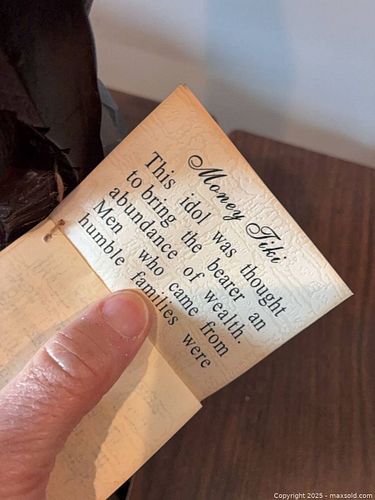 Money Tiki
This idol was thought
to bring the bearer an
abundance of wealth.
Men who came from
humble families were
Copyright 2025 - maxsold.com